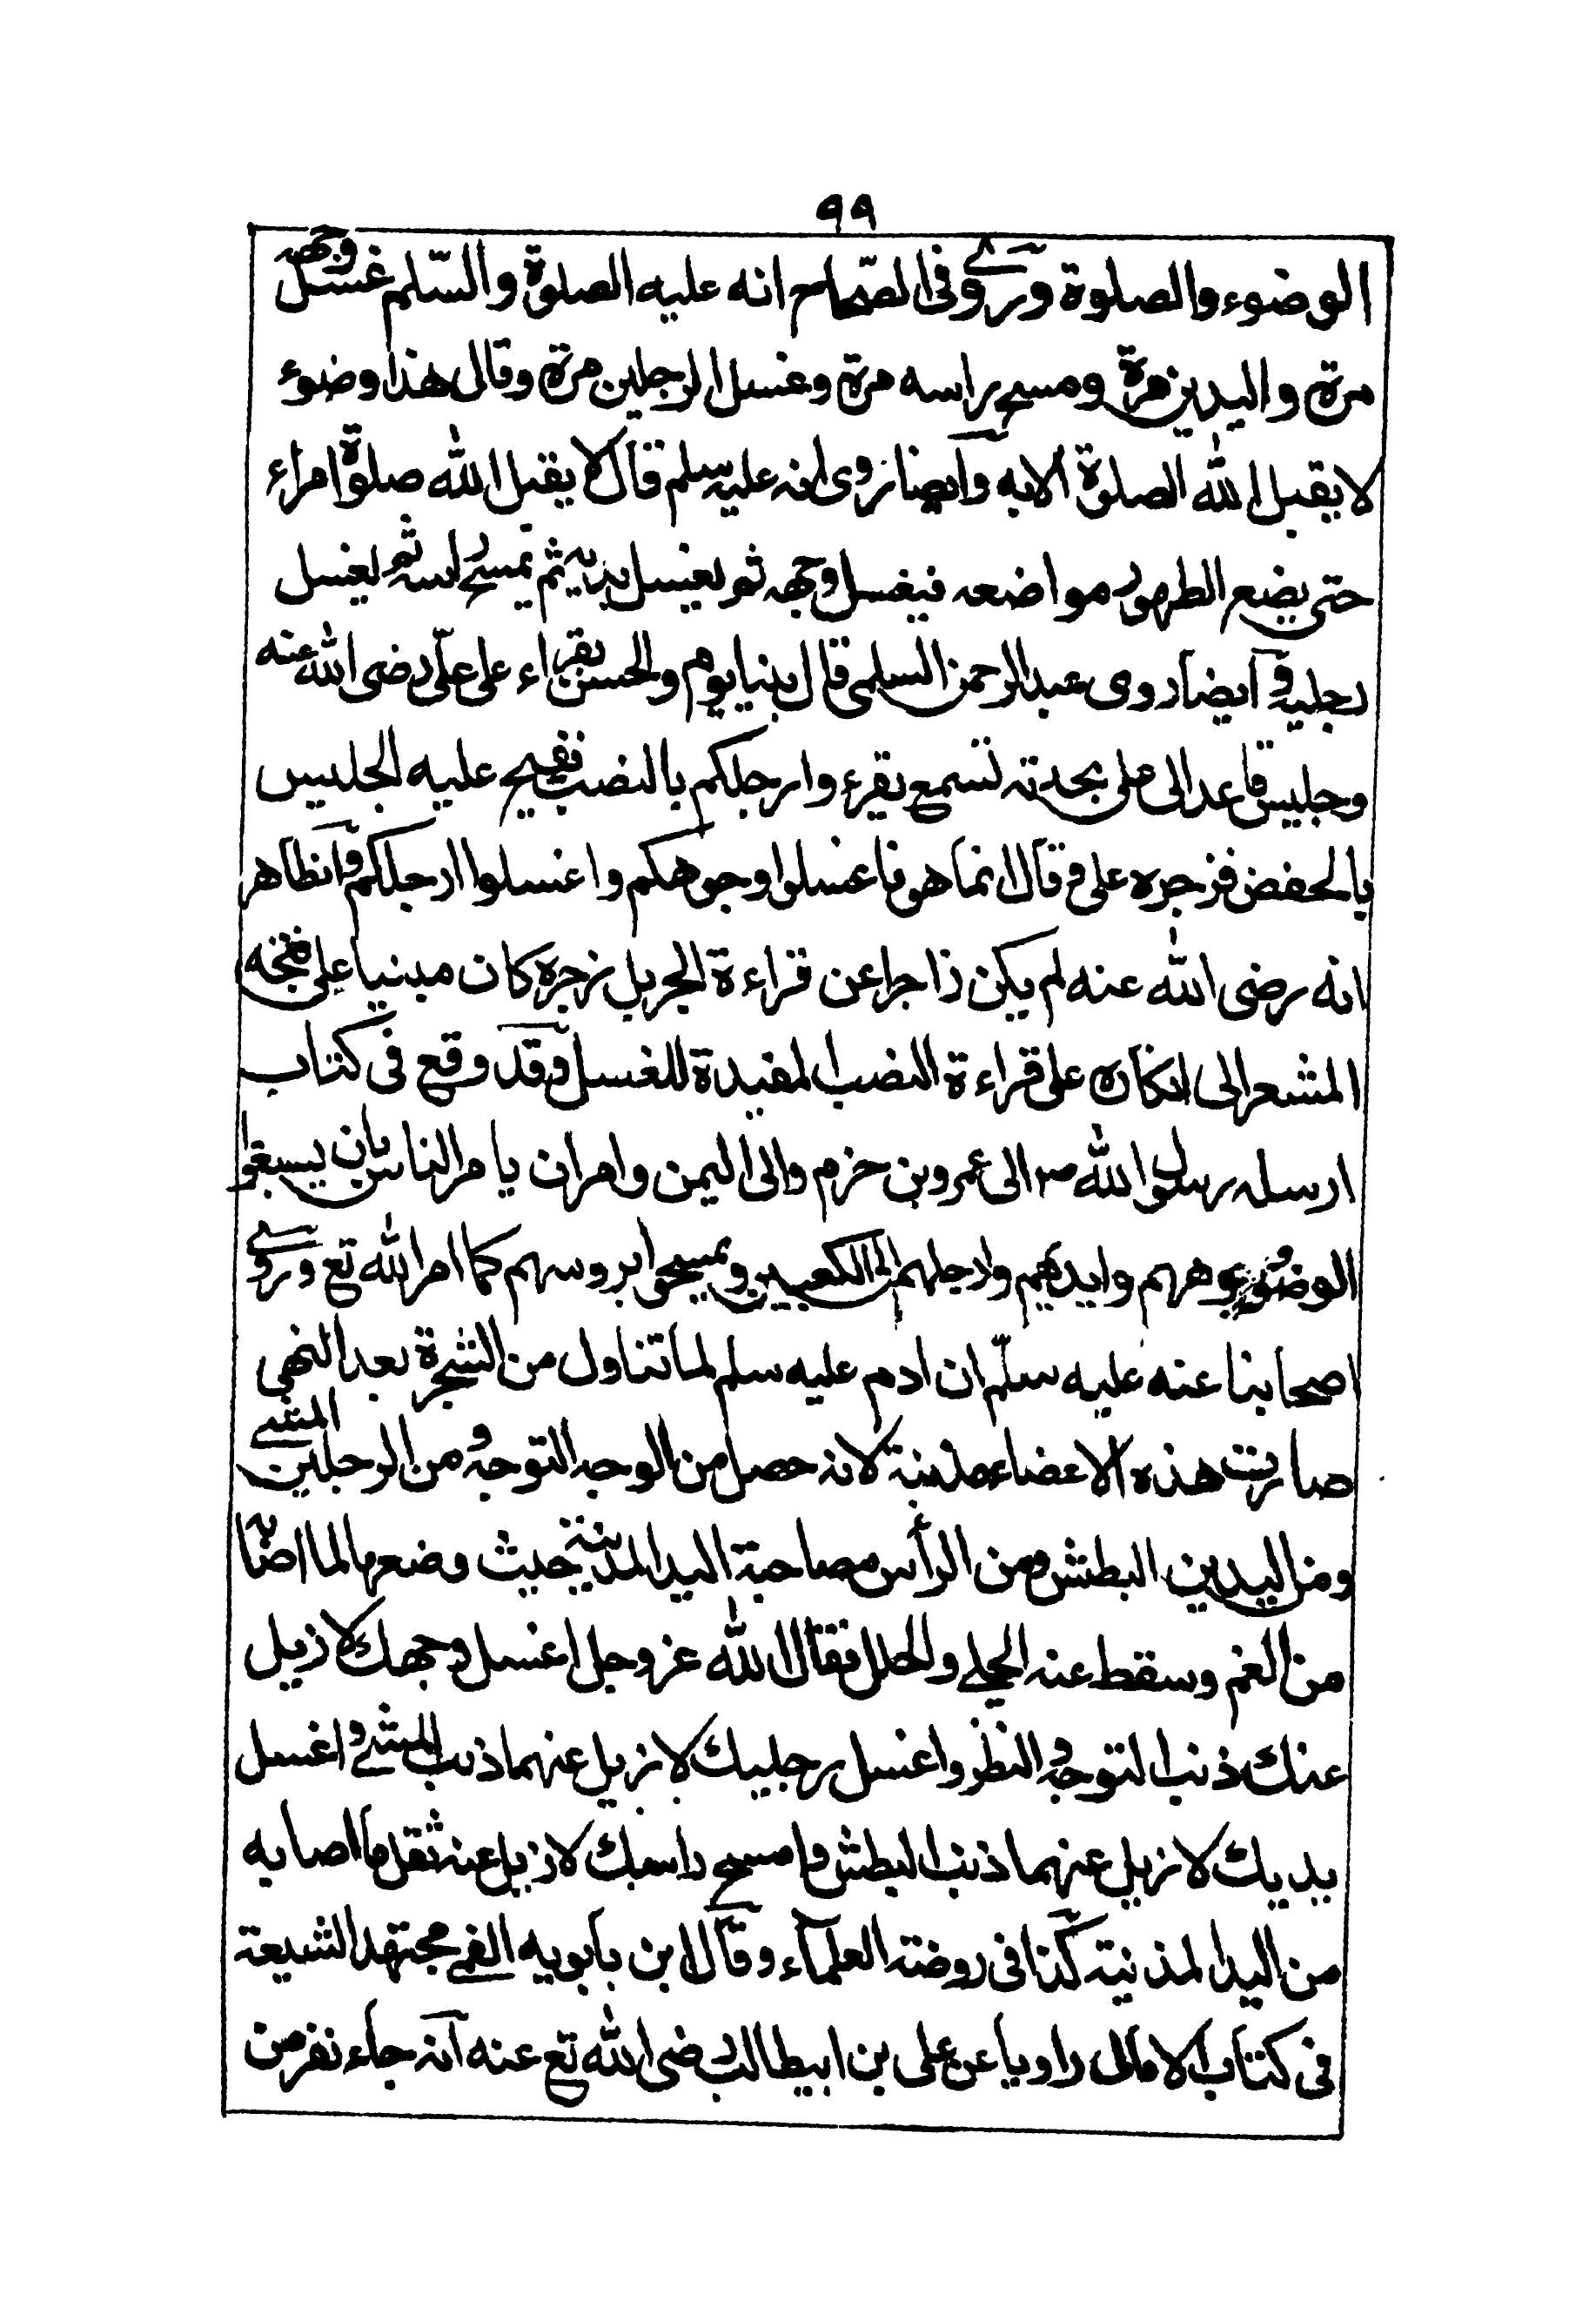 ٩٩
الوضوء والصلوة وروى فى الصحاح انه عليه الصلوة والسّلم غسل وجهه
مرة واليدين مرة ومسح براسه مرة وغسل الرجلين مرة وقال هذا وضوء
لا يقبل الله الصلوة الا به وايضا روى انه عليه سلم قال لا يقبل الله صلوة امراء
حتى يضع الطهور مواضعه فيغسل وجهه ثم يغسل يديه ثم يمسح راسه ثم يغسل
رجليه وايضا روى عبد الرحمن السلمى قال بنيا يوم والحسن يقراء على علىّ رضى الله عنه
وجليس قاعد الى على يحدثه تسمع يقرء وارجلكم بالنصب ففتح عليه الجليس
بالخفض فزجره على وقال انما هو فاغسلوا وجوهكم واغسلوا ارجلكم والظاهر
انه رضى الله عنه لم يكن زاجرا عن قراءة الجر بل زجره كان مبنيا على فتحه
المشعر الى انكاره على قراءة النصب المفيدة للغسل وقد وقع فى كتاب
ارسله رسول الله صـ الى عمرو بن حزم والى اليمن وامران يامر الناس بان يسبغوا
الوضوء وجوههم وايديهم وارجلهم الى الكعبين ويمسحوا بروسهم كما امر الله تع وروى
اصحابنا عنه عليه سلّم ان ادم عليه سلم لما تناول من الشجرة بعد النهى
صارت هذه الاعضاء مذنبة لانه حصل من الوجه التوجه ومن الرجلين المشى
ومن اليدين البطش ومن الرأس مصاحبة اليد المذنبة حيث وضعها لما اصابه
من الغم وسقط عنه الحلى والحلل فقال الله عز وجل اغسل وجهك لازيل
عنك ذنب التوجه والنظر واغسل رجليك لازيل عنهما ذنب المشى واغسل
يديك لازيل عنهما ذنب البطش وامسح راسك لازيل عنه ثقل ما اصابه
من اليد المذنبة كذا فى روضة العلماء وقال ابن بابويه القمى مجتهد الشيعة
فى كتاب الامالى راويا عن على بن ابيطالب رضى الله تع عنه انه جاء نفر من